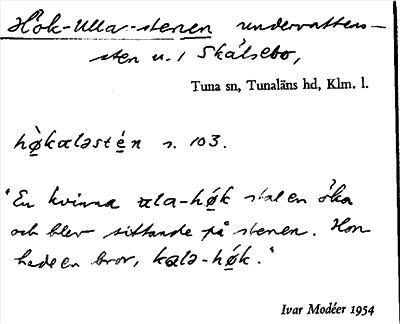 Hök-Ulla-stenen undervattens-
sten u. i Skälsebo,
Tuna sn, Tunaläns hd, Klm. l.
hø̀kaləstén s. 103.
"En kvinna ula-hǿk stal en öka
och blev sittande på stenen. Hon
hade en bror, kalə-hǿk."
Ivar Modéer 1954